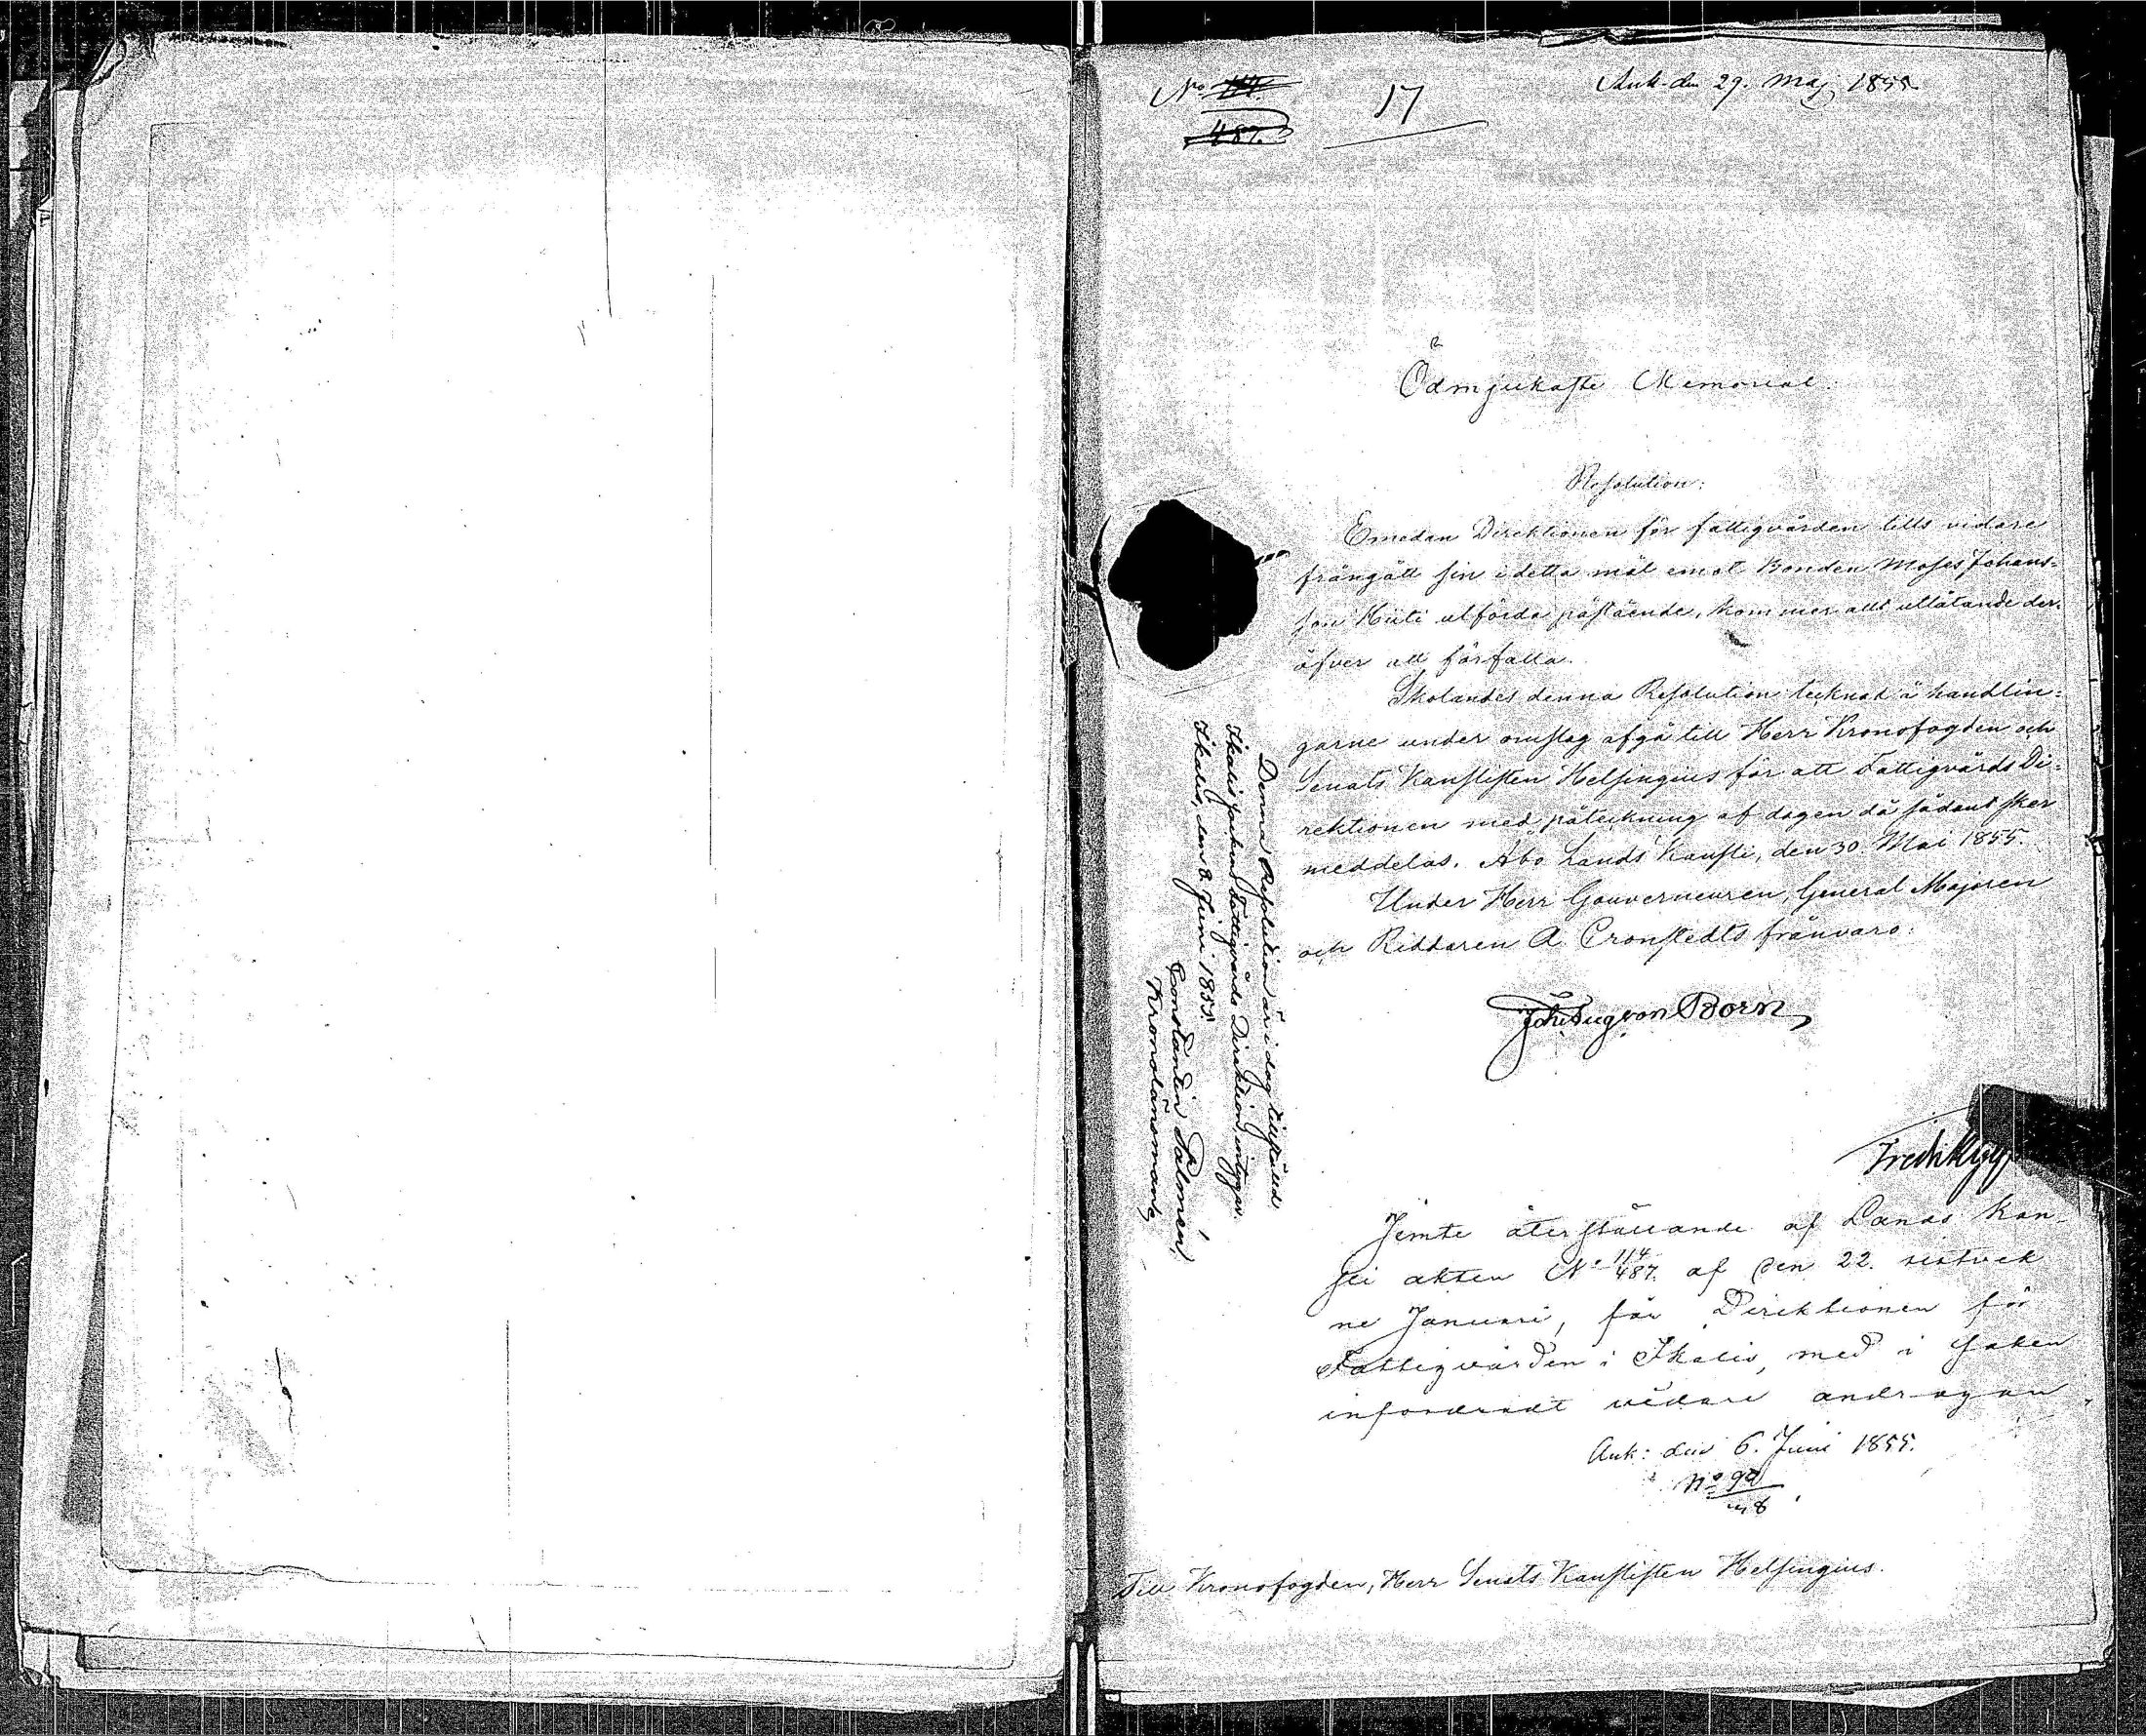 No 114.
487.
17
Ank. den 29. Maj 1855
Ödmjukaste Memorial.
Resolution:
Emedan Direktionen för fattigvården tills vidare
frångått sin i detta mål emot Bonden Moses Johans-
son Kiiti utförda påstående, kommer allt utlåtande der-
öfver att förfalla.
Skolandes denna Resolution tecknad å handlin-
garne under omslag afgå till Herr Kronofogden och
Senats Kanslisten Helsingius för att Fattigvårds Di-
rektionen med påteckning af dagen då sådant sker
meddelas. Åbo Lands Kansli, den 30 Mai 1855.
Under Herr Gouverneuren, General Majoren
och Riddaren A. Cronstedts frånvaro:
Joh. Aug von Born
Denna Resolution är i dag tillstäld
Ikalis sockens Fattigvårds Direktion, intygar.
Ikalis, den 8. Juni 1855.
Constantin Palmén,
Kronolänsman
Jemte återställande af Lands kan-
sli akten No 114/487. af den 22. sistvek
ne Januari, får Direktionen för
Fattigvården i Ikalis, med i saken
infordradt vidare andragan
Ank: den 6. Juni 1855.
No 92
Till Kronofogden, Herr Senats Kanslisten Helsingius.